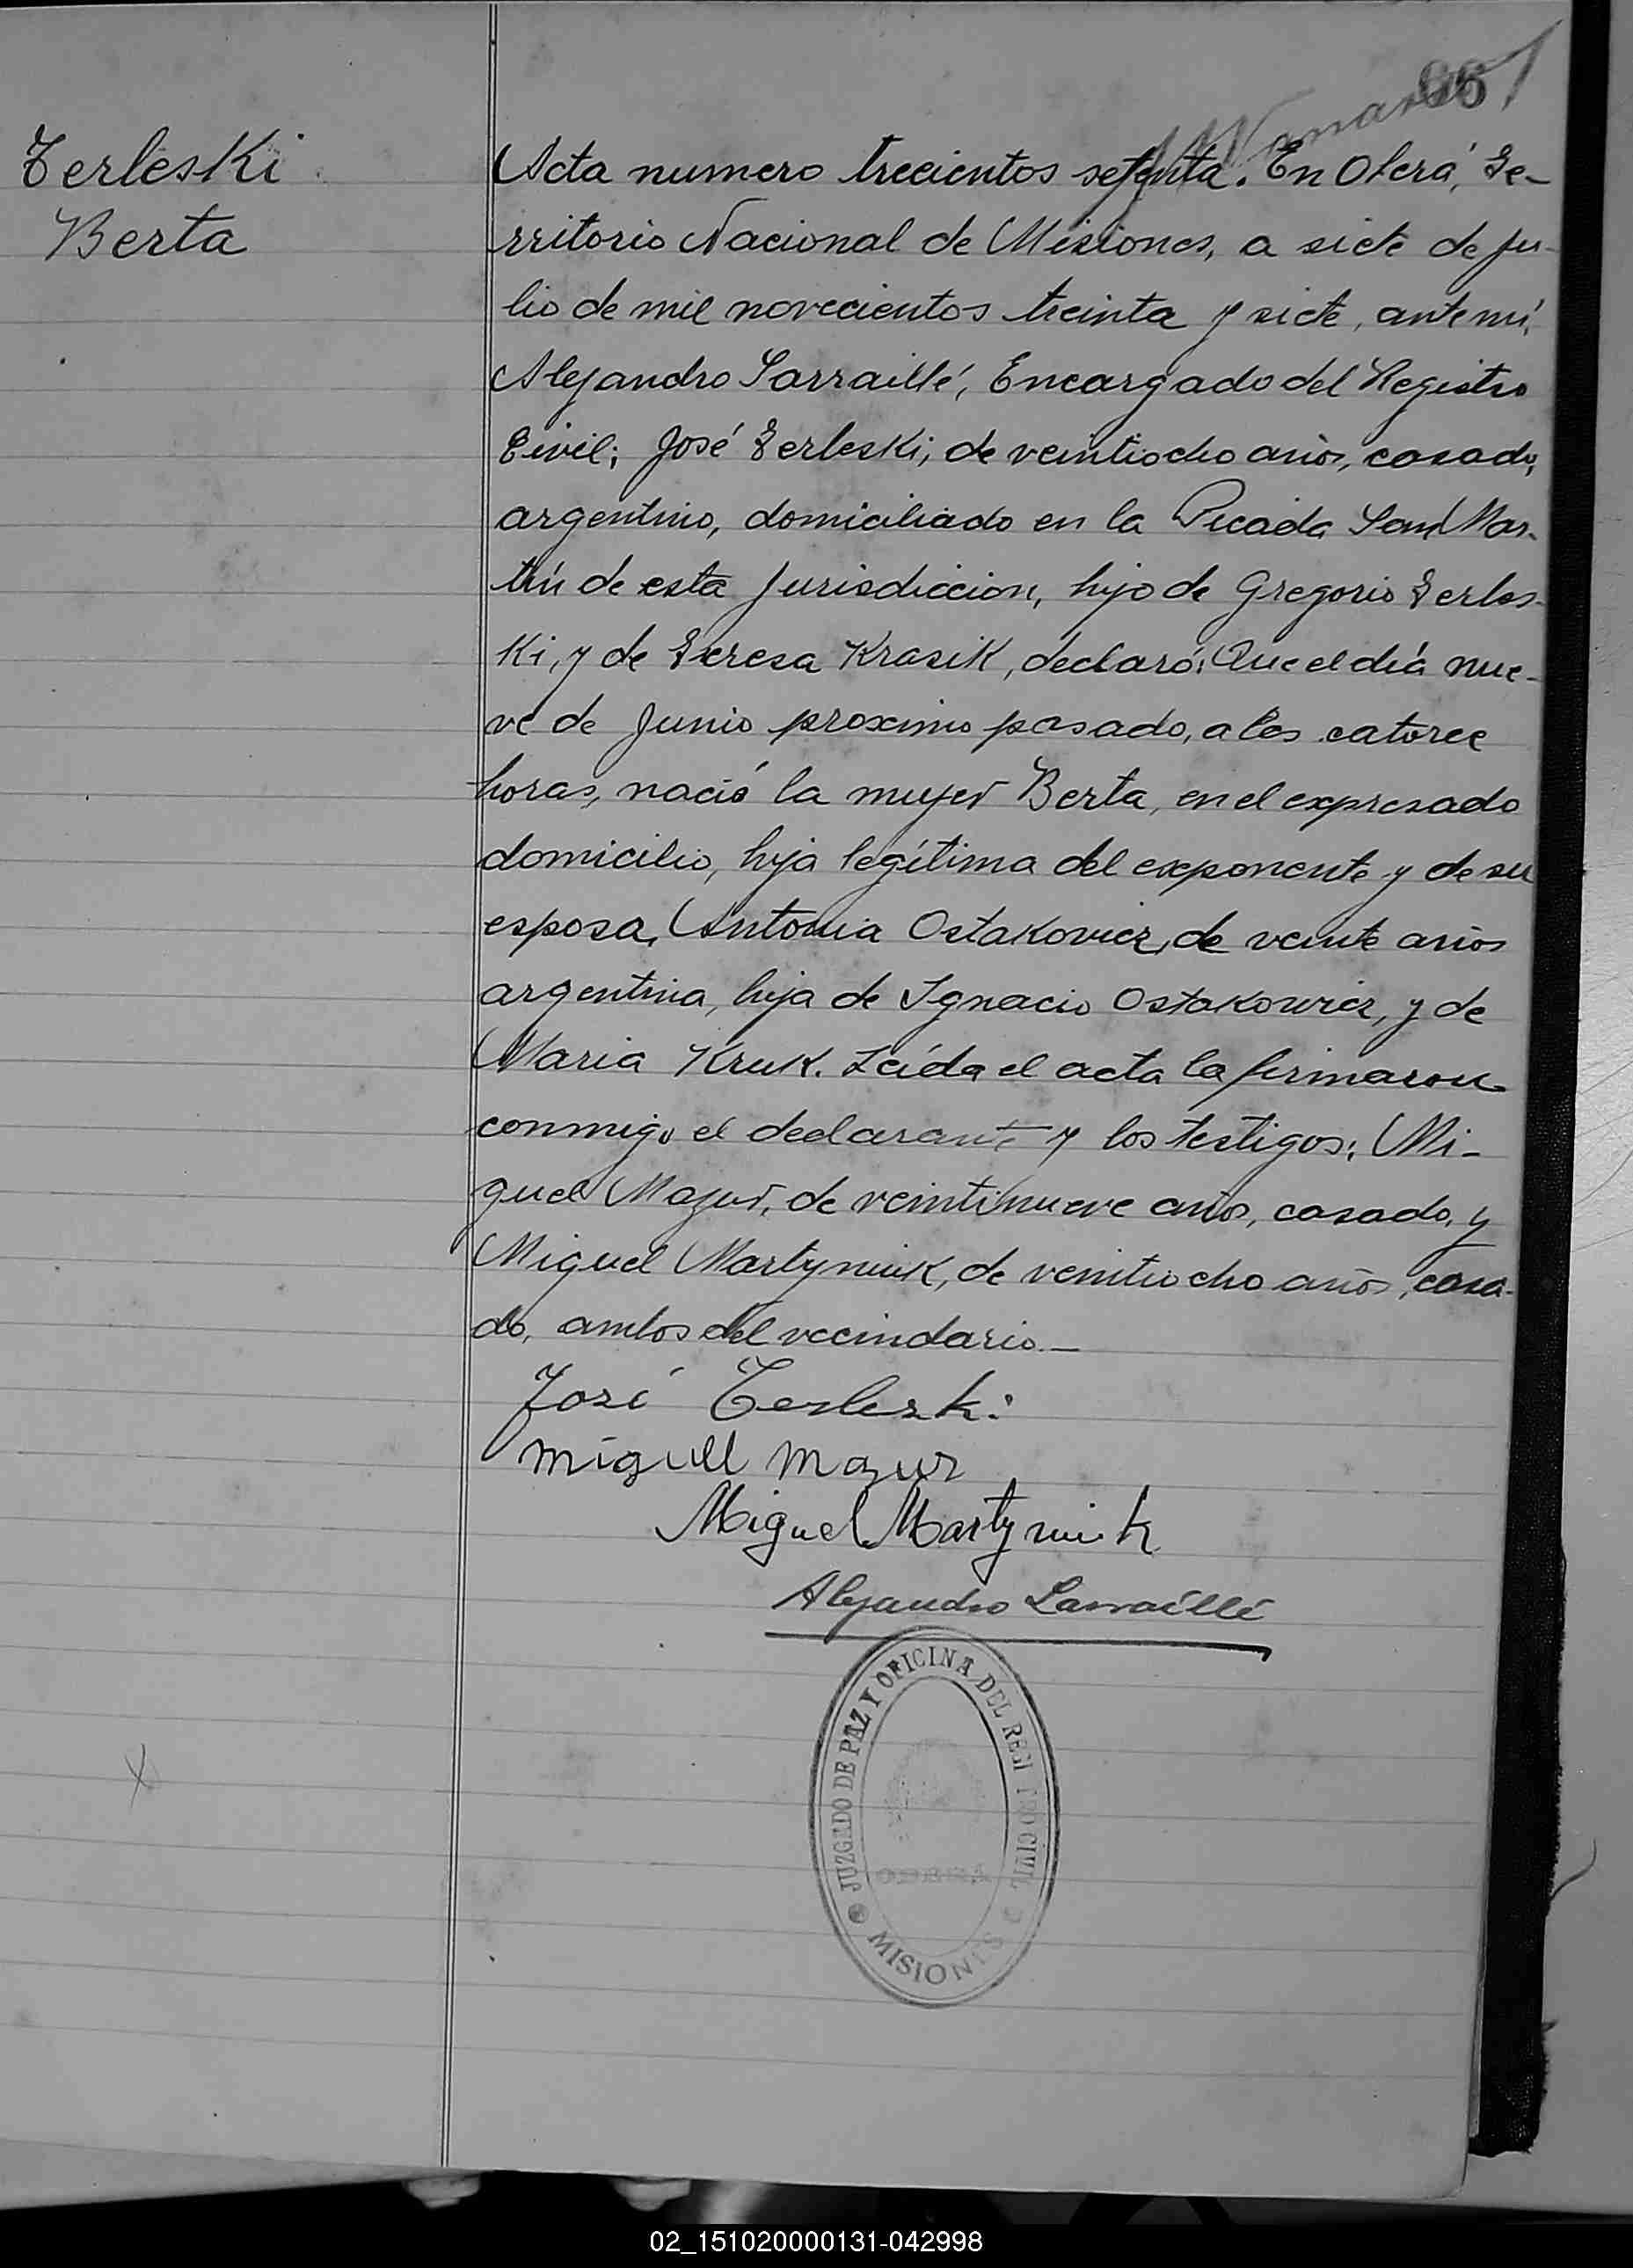 Terleski
Berta
Acta numero trecientos setenta. En Oberá, Te-
rritorio Nacional de Misiones, a siete de Ju-
lio de mil novecientos treinta y siete, ante mí,
Alejandro Sarraillé, Encargado del Registro
Civil; José Terleski, de veintiocho años, casado,
argentino, domiciliado en la Picada San Mar-
tín de esta Jurisdiccion, hijo de Gregorio Terles-
ki, y de Teresa Krasik, declaró: Que el día nue-
ve de Junio proximo pasado, a las catorce
horas, nació la mujer Berta, en el expresado
domicilio, hija legítima del exponente y de su
esposa, Antonia Ostakovicz, de veinte años
argentina, hija de Ignacio Ostakowicz, y de
Maria Kruk. Leída el acta la firmaron
conmigo el declarante y los testigos: Mi-
guel Mazur, de veintinueve años, casado, y
Miguel Martyniuk, de veintiocho años, casa-
do, ambos del vecindario.—
José Terleski
Miguel Mazur
Miguel Martyniuk
Alejandro Sarraillé
JUZGADO DE PAZ Y OFICINA DEL REGISTRO CIVIL
OBERA
MISIONES
02_151020000131-042998